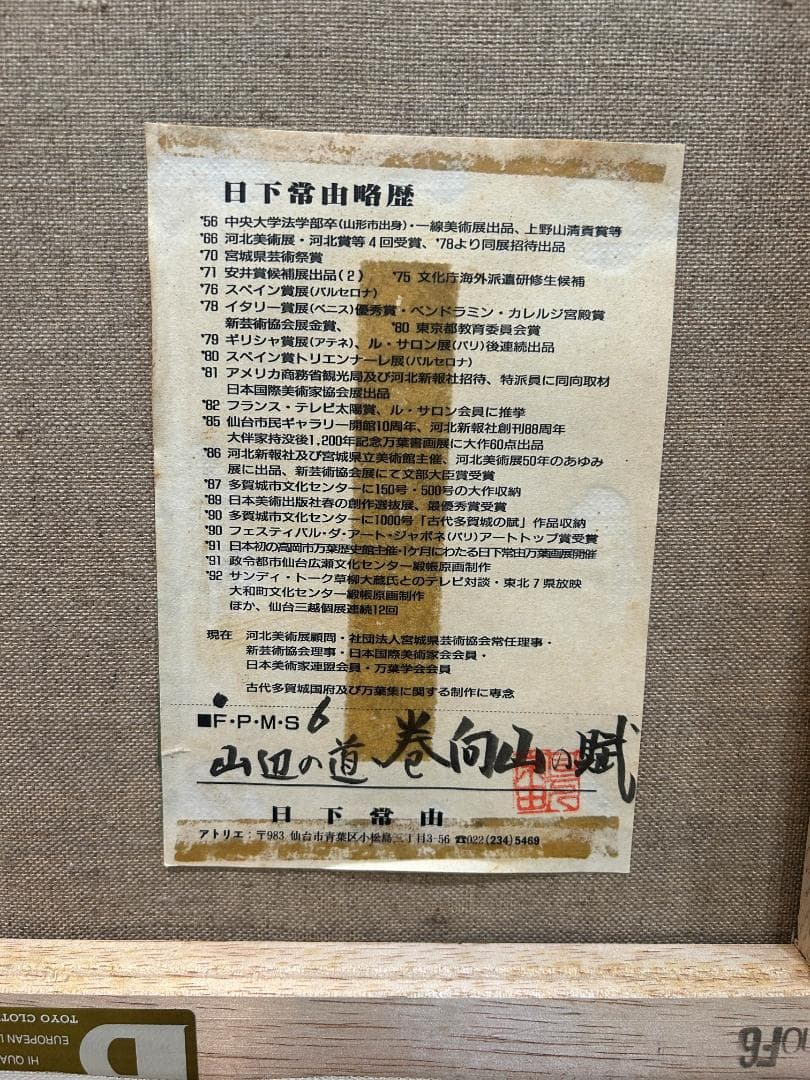 日下常由略歴
'56 中央大学法学部卒(山形市出身)・一線美術展出品、上野山清貢賞等
'66 河北美術展・河北賞等4回受賞、'78より同展招待出品
'70 宮城県芸術祭賞
'71 安井賞候補展出品(2) '75 文化庁海外派遣研修生候補
'76 スペイン賞展(バルセロナ)
'78 イタリー賞展(ベニス)優秀賞・ベンドラミン・カレルジ宮殿賞
新芸術協会展金賞、 '80 東京都教育委員会賞
'79 ギリシャ賞展(アテネ)、ル・サロン展(パリ)後連続出品
'80 スペイン賞トリエンナーレ展(バルセロナ)
'81 アメリカ商務省観光局及び河北新報社招待、特派員に同向取材
日本国際美術家協会展出品
'82 フランス・テレビ太陽賞、ル・サロン会員に推挙
'85 仙台市民ギャラリー開館10周年、河北新報社創刊88周年
大伴家持没後1,200年記念万葉書画展に大作60点出品
'86 河北新報社及び宮城県立美術館主催、河北美術展50年のあゆみ
展に出品、新芸術協会展にて文部大臣賞受賞
'87 多賀城市文化センターに150号・500号の大作収納
'89 日本美術出版社春の創作選抜展、最優秀賞受賞
'90 多賀城市文化センターに1000号「古代多賀城の賦」作品収納
'90 フェスティバル・ダ・アート・ジャポネ(パリ)アートトップ賞受賞
'91 日本初の高岡市万葉歴史館主催・1ケ月にわたる日下常由万葉画展開催
'91 政令都市仙台広瀬文化センター緞帳原画制作
'92 サンディ・トーク草柳大蔵氏とのテレビ対談・東北7県放映
大和町文化センター緞帳原画制作
ほか、仙台三越個展連続12回
現在 河北美術展顧問・社団法人宮城県芸術協会常任理事・
新芸術協会理事・日本国際美術家会会員・
日本美術家連盟会員・万葉学会会員
古代多賀城国府及び万葉集に関する制作に専念
■F・P・M・S 6
山辺の道 巻向山の賦
日下常由
アトリエ：〒983 仙台市青葉区小松島三丁目3-56 ☎022(234)5469
TOYO CLOT
EUROPEAN L
HI QUA
F6